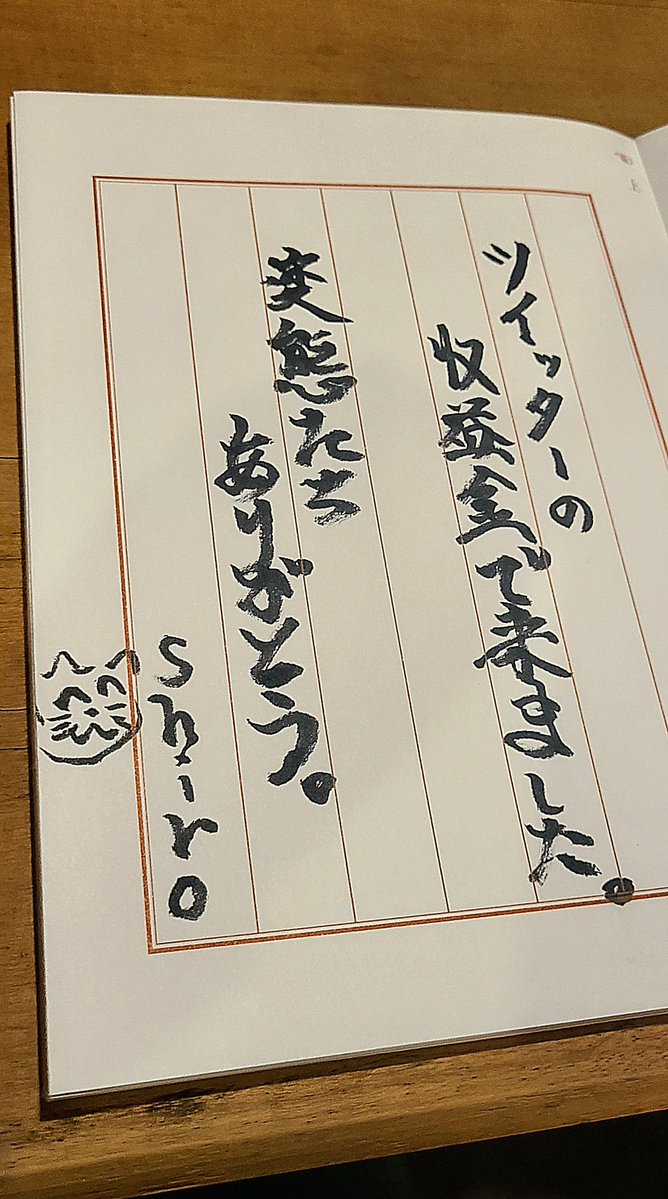 ツイッターの
収益金で来ました。
変態たち
ありがとう。
Shiro